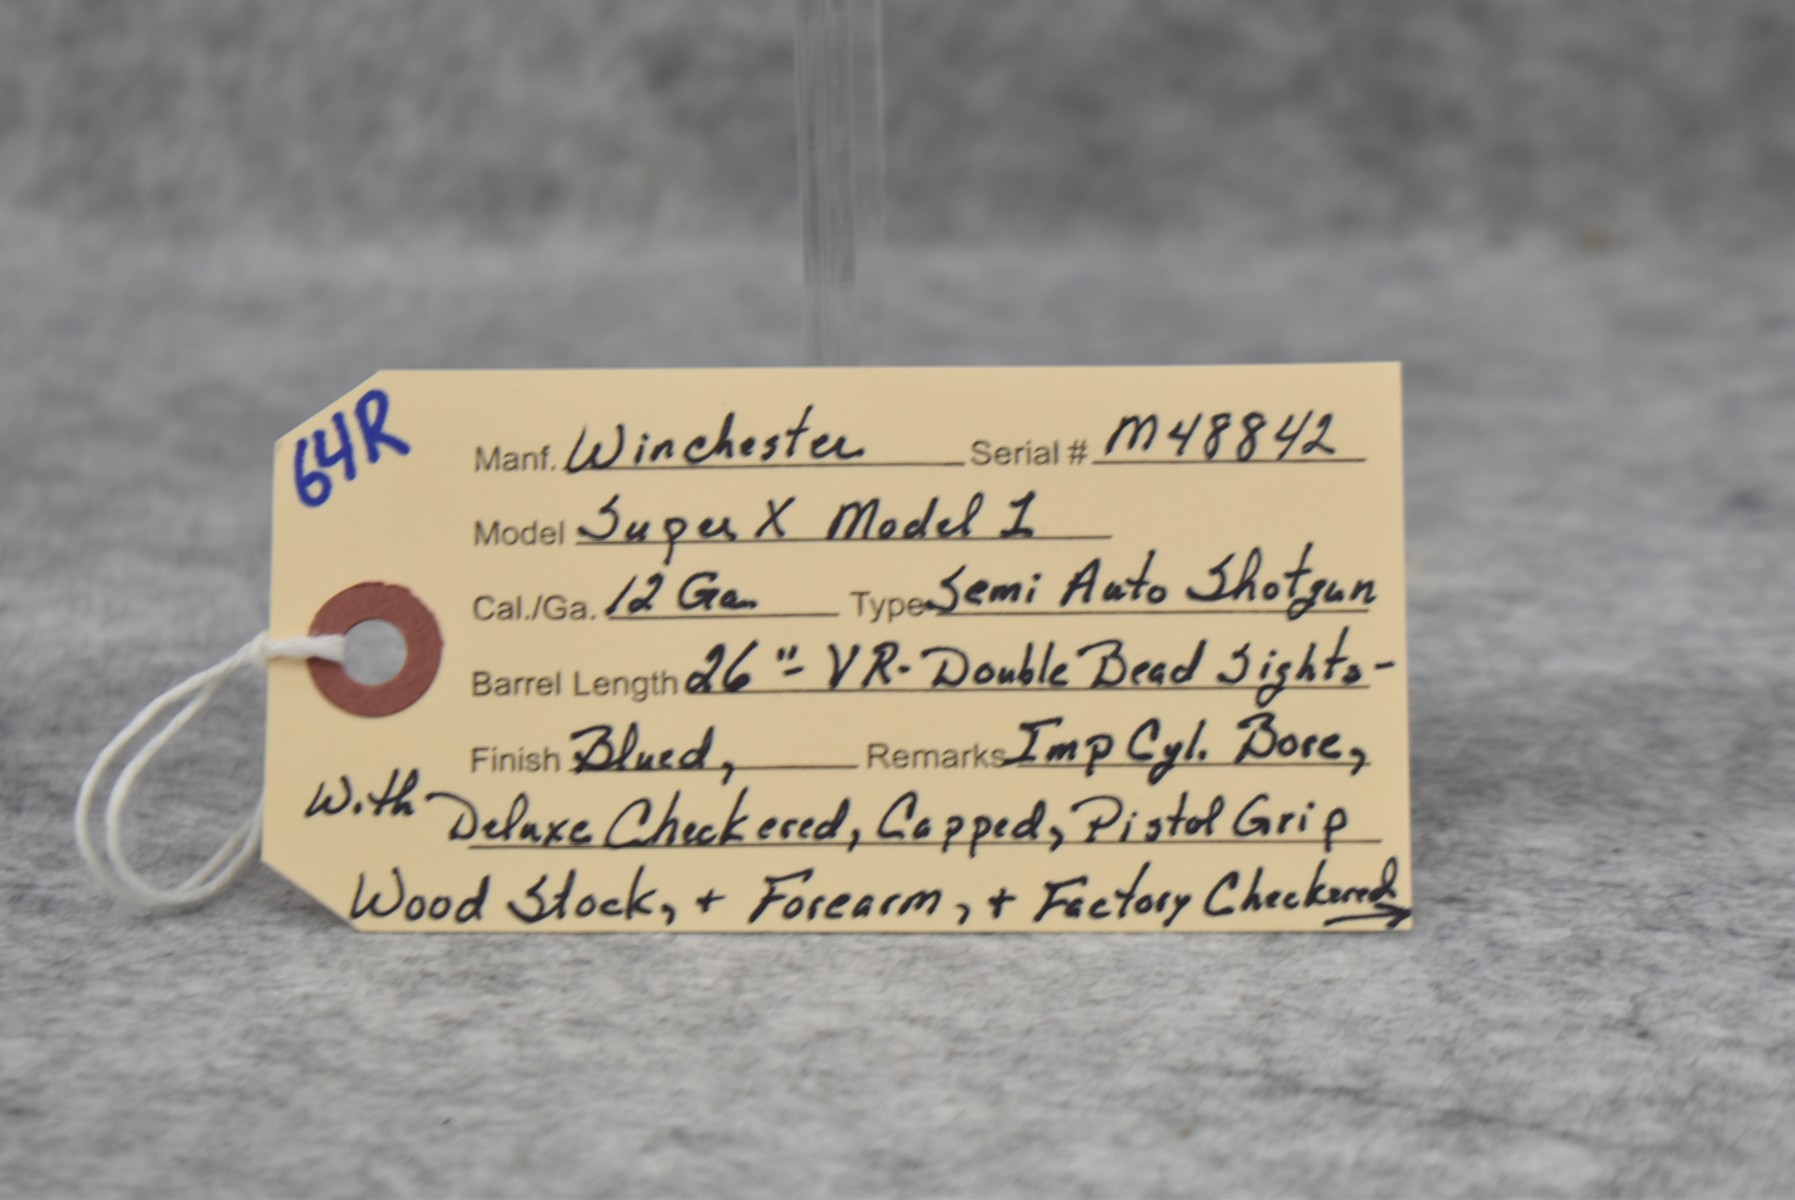 64R
Manf. Winchester Serial # M48842
Model Super X Model 1
Cal./Ga. 12 Ga. Type Semi Auto Shotgun
Barrel Length 26"- VR- Double Bead Sights-
Finish Blued, Remarks Imp Cyl. Bore,
With Deluxe Checkered, Capped, Pistol Grip
Wood Stock, + Forearm, + Factory Checkered →